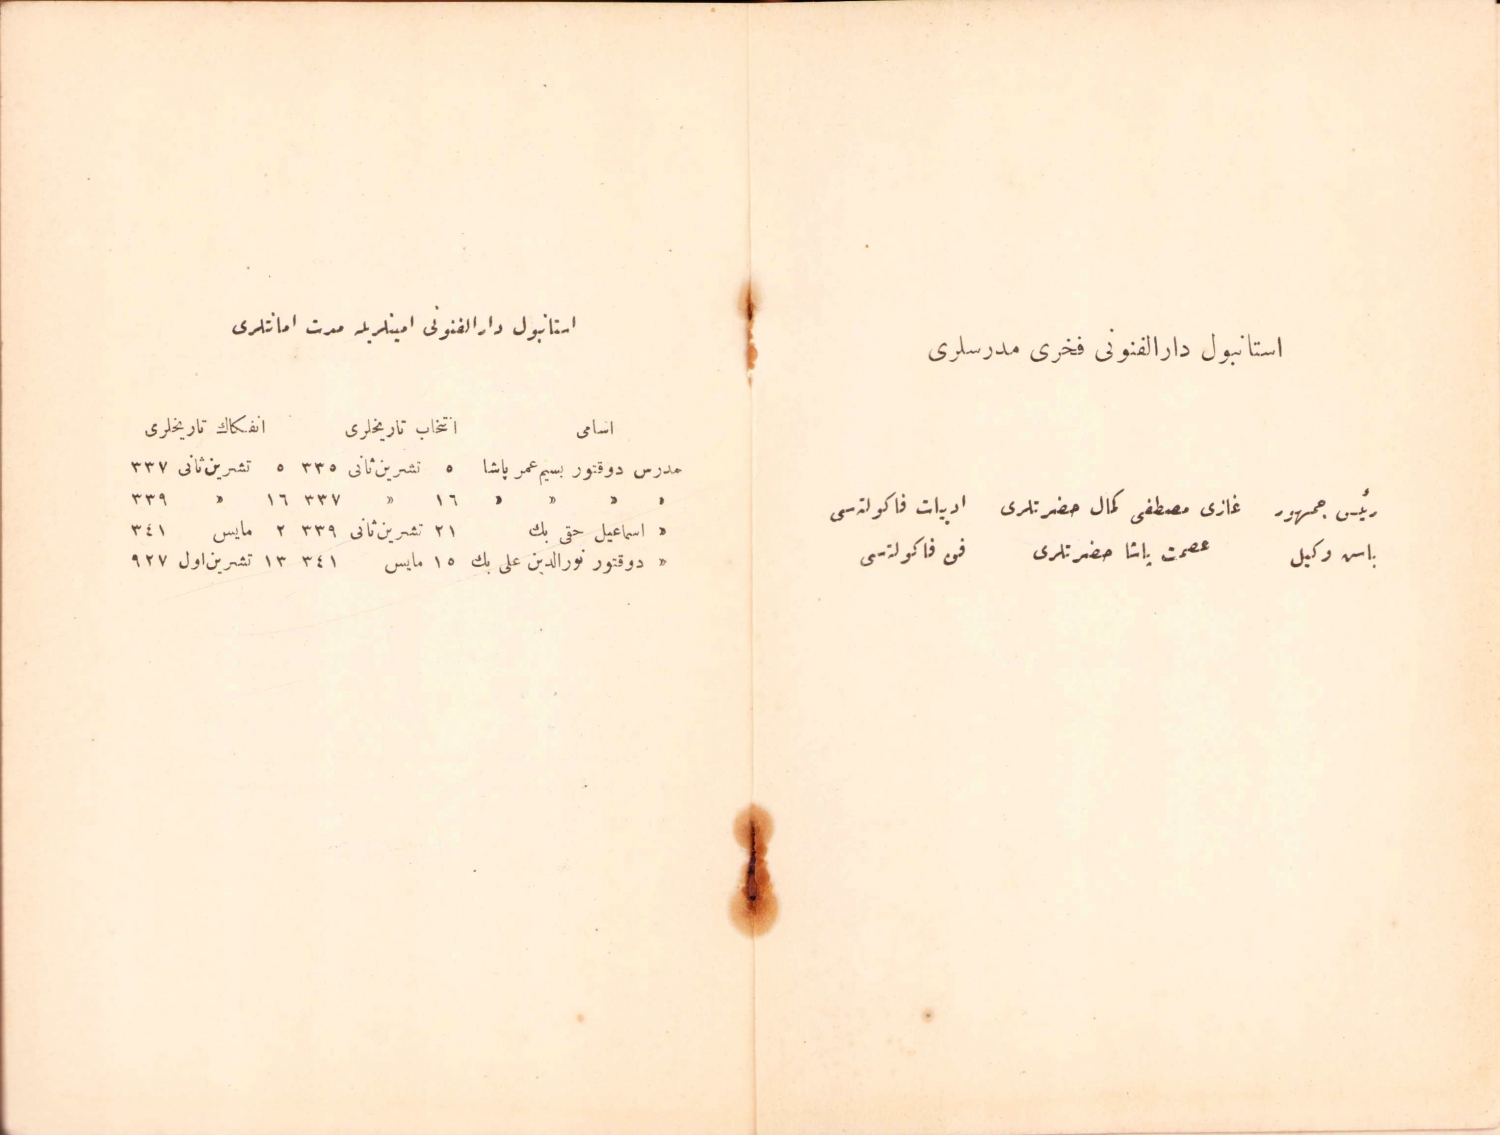 استانبول دارالفنونی فخری مدرسلری
رئیس جمهور غازی مصطفی کمال حضرتلری ادبیات فاکولته‌سی
باش وکیل عصمت پاشا حضرتلری فن فاکولته‌سی
استانبول دارالفنونی امینلریله مدت امانتلری
اسامی انتخاب تاریخلری انفکاك تاریخلری
مدرس دوقتور بسیم عمر پاشا ٥ تشرین‌ثانی ٣٣٥ ٥ تشرین‌ثانی ٣٣٧
« « « « ١٦ « ٣٣٧ ١٦ « ٣٣٩
« اسماعیل حقی بك ٢١ تشرین‌ثانی ٣٣٩ ٢ مایس ٣٤١
« دوقتور نورالدین علی بك ١٥ مایس ٣٤١ ١٣ تشرین‌اول ٩٢٧